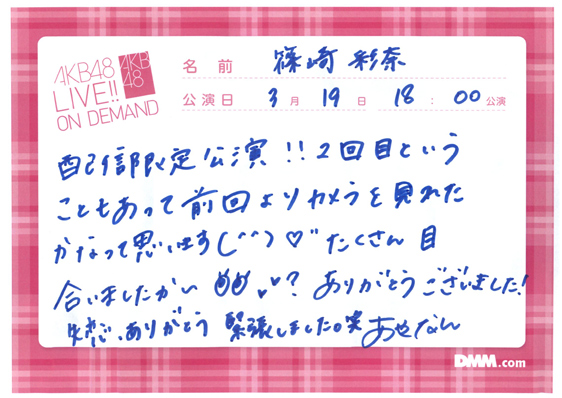 AKB48
LIVE!!
ON DEMAND
AKB
48
名前 篠崎 彩奈
公演日 3月19日 18:00公演
配信限定公演!!2回目という
こともあって前回よりカメラを見れた
かなって思います(^^)♡たくさん目
合いましたかい ?ありがとうございました!
失恋、ありがとう 緊張しました。笑 あやなん
DMM.com